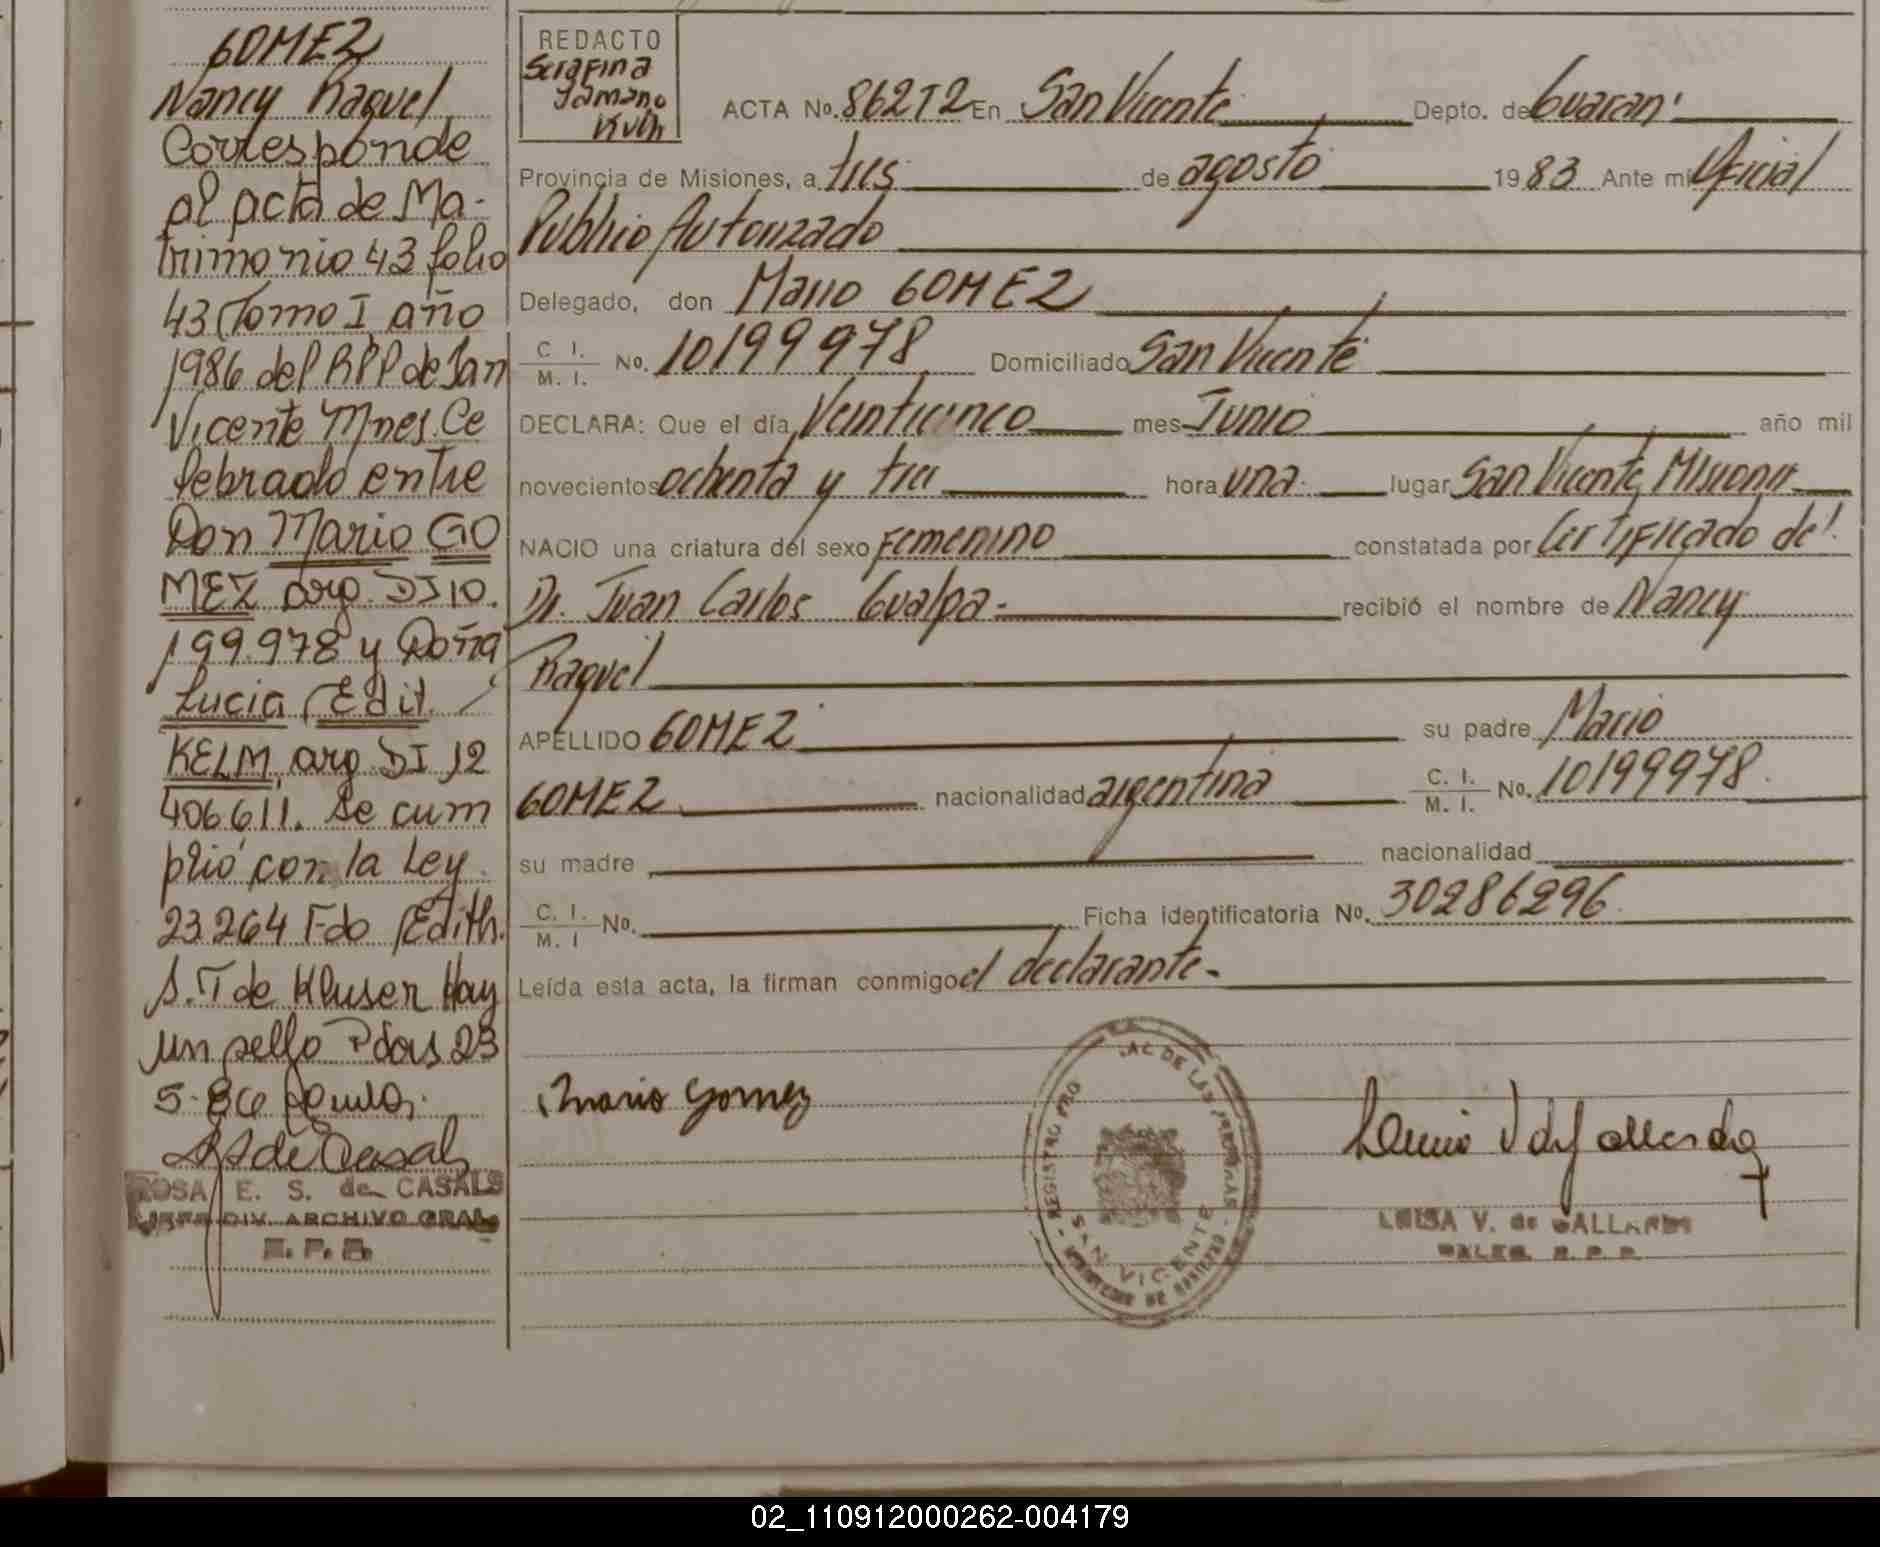 GOMEZ
Nancy Raquel
Corresponde
al acta de Ma-
trimonio 43 folio
43 Tomo I año
1986 del RPP de San
Vicente Mnes. Ce
lebrado entre
Don Mario GO
MEZ arg. DI 10.
199.978 y Doña
Lucia Edit
KELM, arg. DI 12
406611. Se cum
plió con la Ley
23.264 Fdo Edith
S. T de Kluser Hay
un sello Pdas 23
5-86
ROSA E. S. de CASALS
JEFE DIV. ARCHIVO GRAL.
R. P. P.
REDACTO
Serafina
ACTA No. 862T2 En San Vicente Depto. de Guaraní
Provincia de Misiones, a tres de agosto 1983 Ante mí Oficial
Publico Autorizado
Delegado, don Mario GOMEZ
C. I.
M. I. No. 10199978 Domiciliado San Vicente
DECLARA: Que el día Veinticinco mes Junio año mil
novecientos ochenta y tres hora una lugar San Vicente, Misiones
NACIO una criatura del sexo Femenino constatada por Certificado del
Dr. Juan Carlos Gualpa.- recibió el nombre de Nancy
Raquel
APELLIDO GOMEZ su padre Mario
GOMEZ nacionalidad argentina C. I.
M. I. No. 10199978
su madre nacionalidad
C. I.
M. I No. Ficha identificatoria No. 30286296
Leída esta acta, la firman conmigo el declarante.-
Mario Gomez
REGISTRO PRO AL DE LAS PERSONAS
SAN VICENTE
LUISA V. de GALLARDO
R. P. P.
02_110912000262-004179